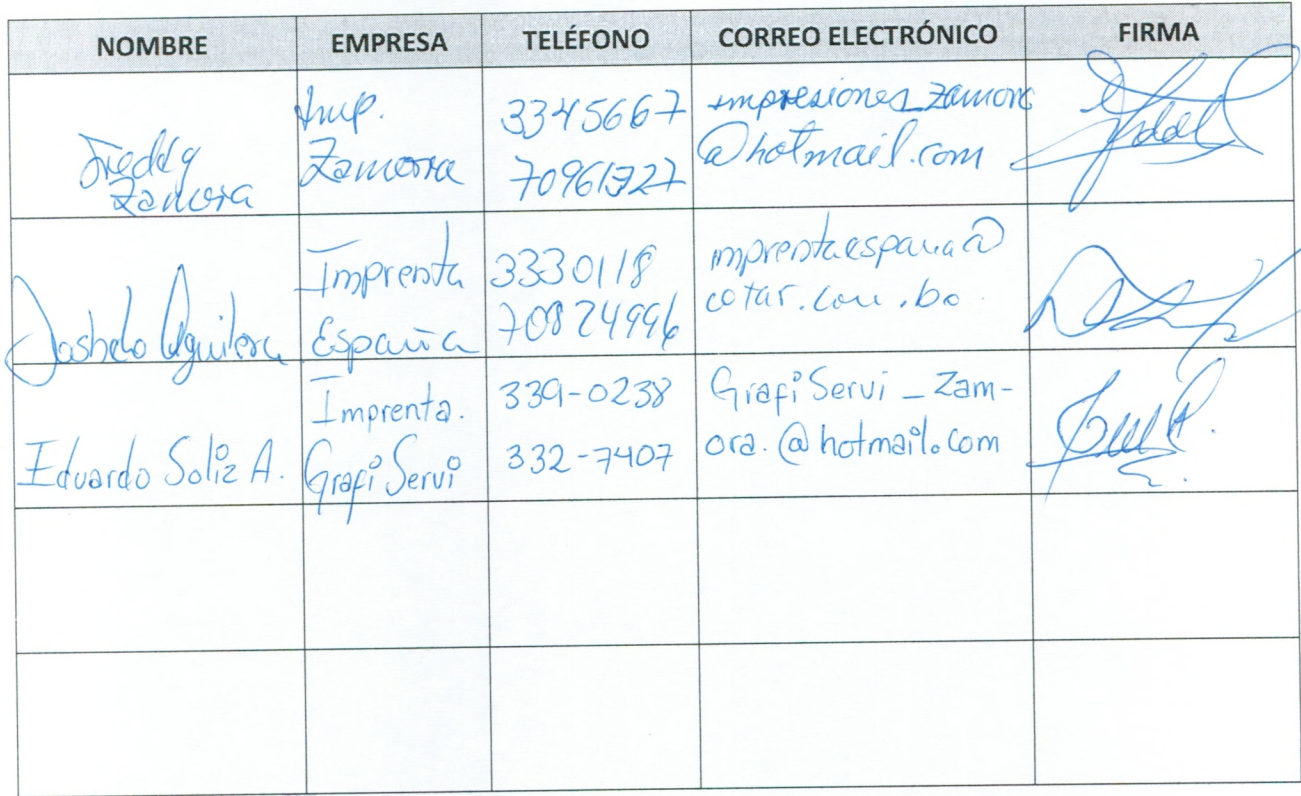 NOMBRE EMPRESA TELÉFONO CORREO ELECTRÓNICO FIRMA
Freddy Zamora
Imp. Zamora
3345667
70961327
impresiones_zamora
@hotmail.com
Aguilera
Imprenta
España
3330118
70824996
imprentaespana@
cotas.com.bo
Eduardo Soliz A.
Imprenta.
GrafiServi
339-0238
332-7407
GrafiServi_Zam-
ora.@hotmail.com